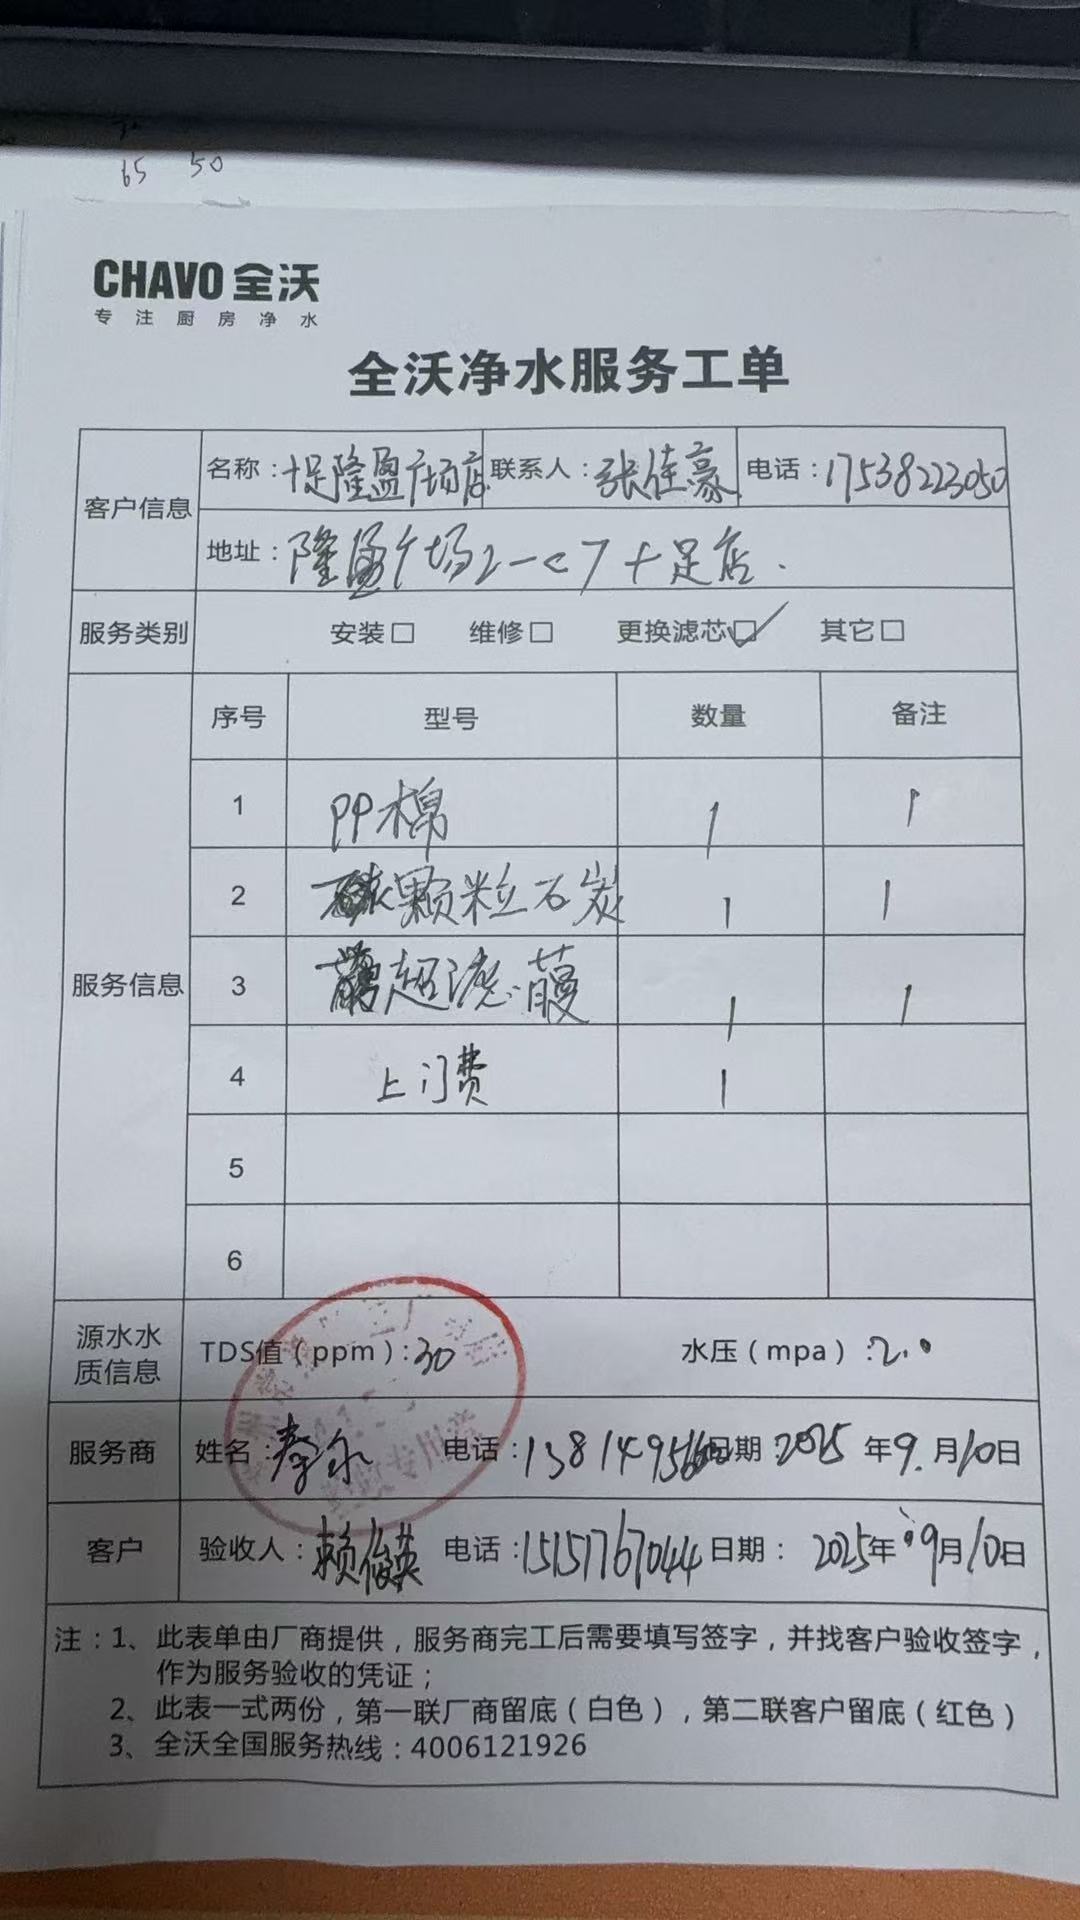 65 50
CHAVO 全沃
专注厨房净水
全沃净水服务工单
客户信息 名称：十足隆盈广场店 联系人：张佳豪 电话：17538223050
地址：隆盈广场2-C7十足店.
服务类别 安装□ 维修□ 更换滤芯☑ 其它□
服务信息
序号 型号 数量 备注
1 PP棉 1 1
2 颗粒石炭 1 1
3 超滤 1 1
4 上门费 1
5
6
源水水质信息 TDS值（ppm）：30 水压（mpa）：2.0
服务商 姓名： 电话：138149566 日期 2025年9.月10日
客户 验收人：赖俊英 电话：15151767044 日期：2025年9月10日
注：1、此表单由厂商提供，服务商完工后需要填写签字，并找客户验收签字，
作为服务验收的凭证；
2、此表一式两份，第一联厂商留底（白色），第二联客户留底（红色）
3、全沃全国服务热线：4006121926